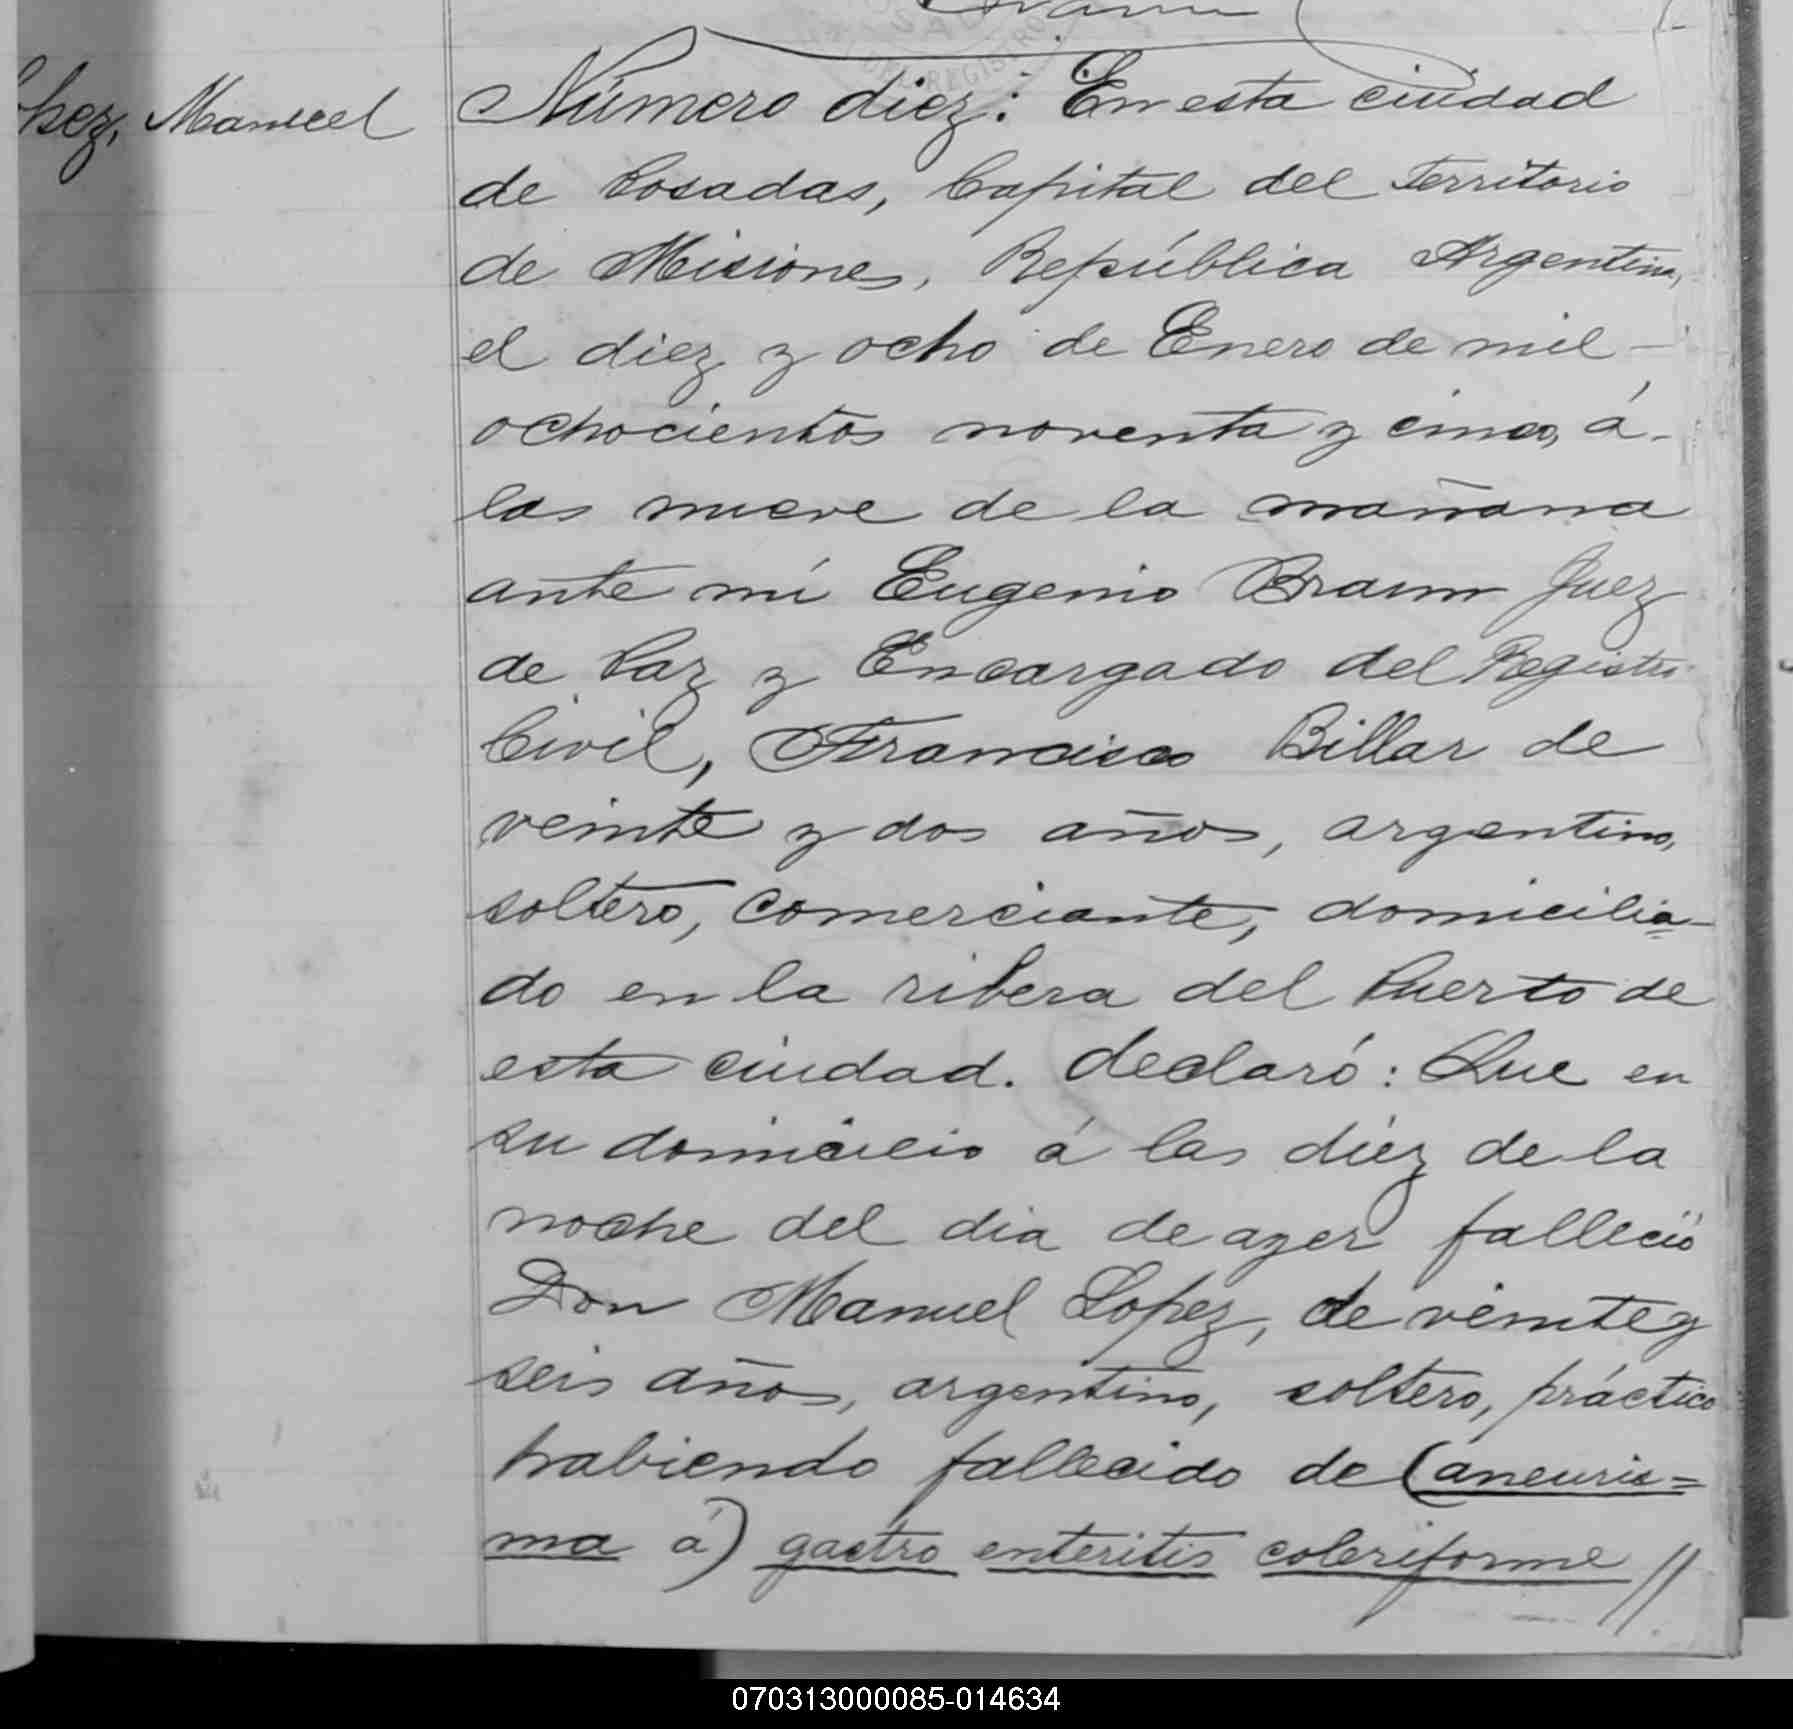 Braun
SAD
DEL REGISTRO
pez, Manuel
Número diez: En esta ciudad
de Posadas, Capital del Territorio
de Misiones, República Argentina,
el diez y ocho de Enero de mil
ochocientos noventa y cinco, á
las nueve de la mañana
ante mí Eugenio Braun Juez
de Paz y Encargado del Registro
Civil, Francisco Billar de
veinte y dos años, argentino,
soltero, comerciante, domicilia-
do en la ribera del Puerto de
esta ciudad. declaró: Que en
su domicilio á las diez de la
noche del dia de ayer falleció
Don Manuel Lopez, de veinte y
seis años, argentino, soltero, práctico
habiendo fallecido de (aneuris=
ma á) gastro enteritis coleriforme //
070313000085-014634